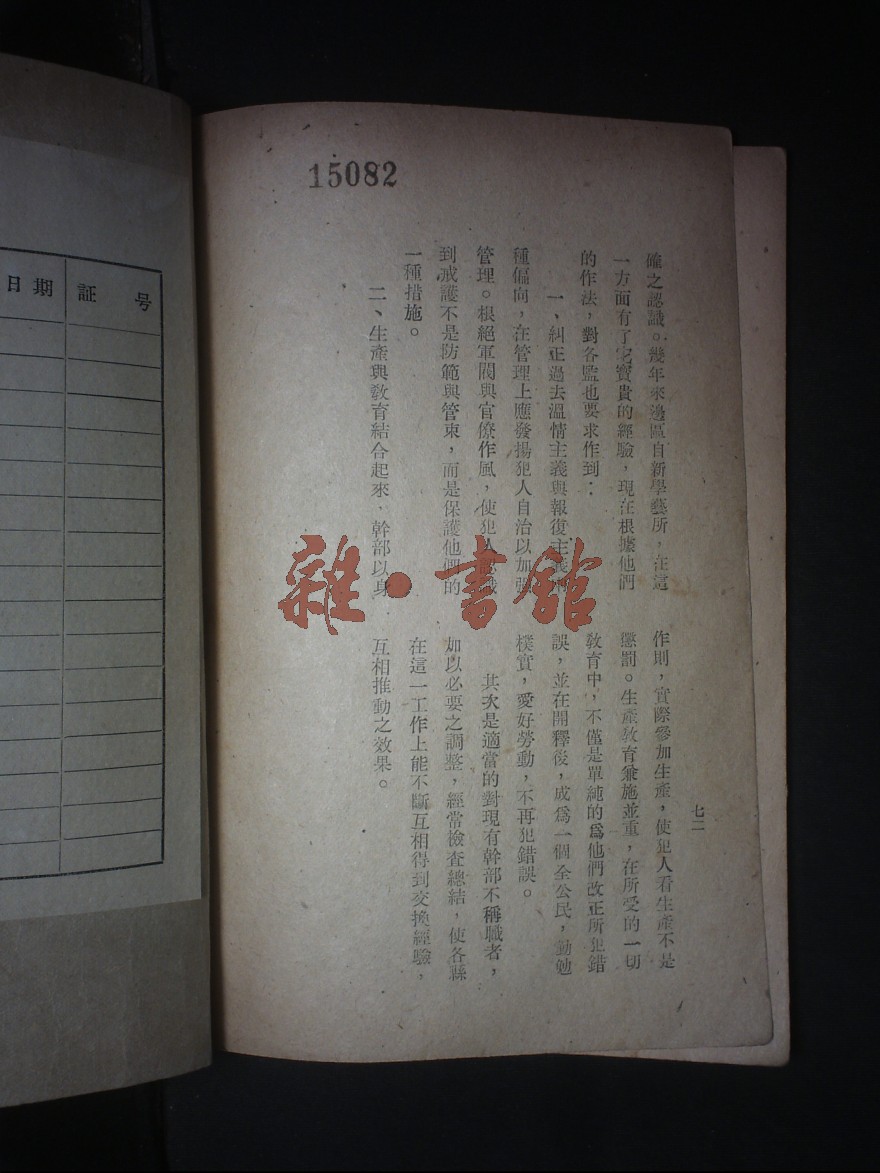 15082
日期
証号
確之認識。幾年來邊區自新學藝所，在這
一方面有了寶貴的經驗，現在根據他們
的作法，對各監也要求作到：
一、糾正過去溫情主義與報復主義
種偏向，在管理上應發揚犯人自治以加強
管理。根絕軍閥與官僚作風，使犯人認識
到戒護不是防範與管束，而是保護他們的
一種措施。
二、生產與教育結合起來，幹部以身
作則，實際參加生產，使犯人看生產不是
懲罰。生產敎育兼施並重，在所受的一切
敎育中，不僅是單純的爲他們改正所犯錯
誤，並在開釋後，成爲一個全公民，勤勉
樸實，愛好勞動，不再犯錯誤。
其次是適當的對現有幹部不稱職者，
加以必要之調整，經常檢查總結，使各縣
在這一工作上能不斷互相得到交換經驗，
互相推動之效果。
七二
雜·書館